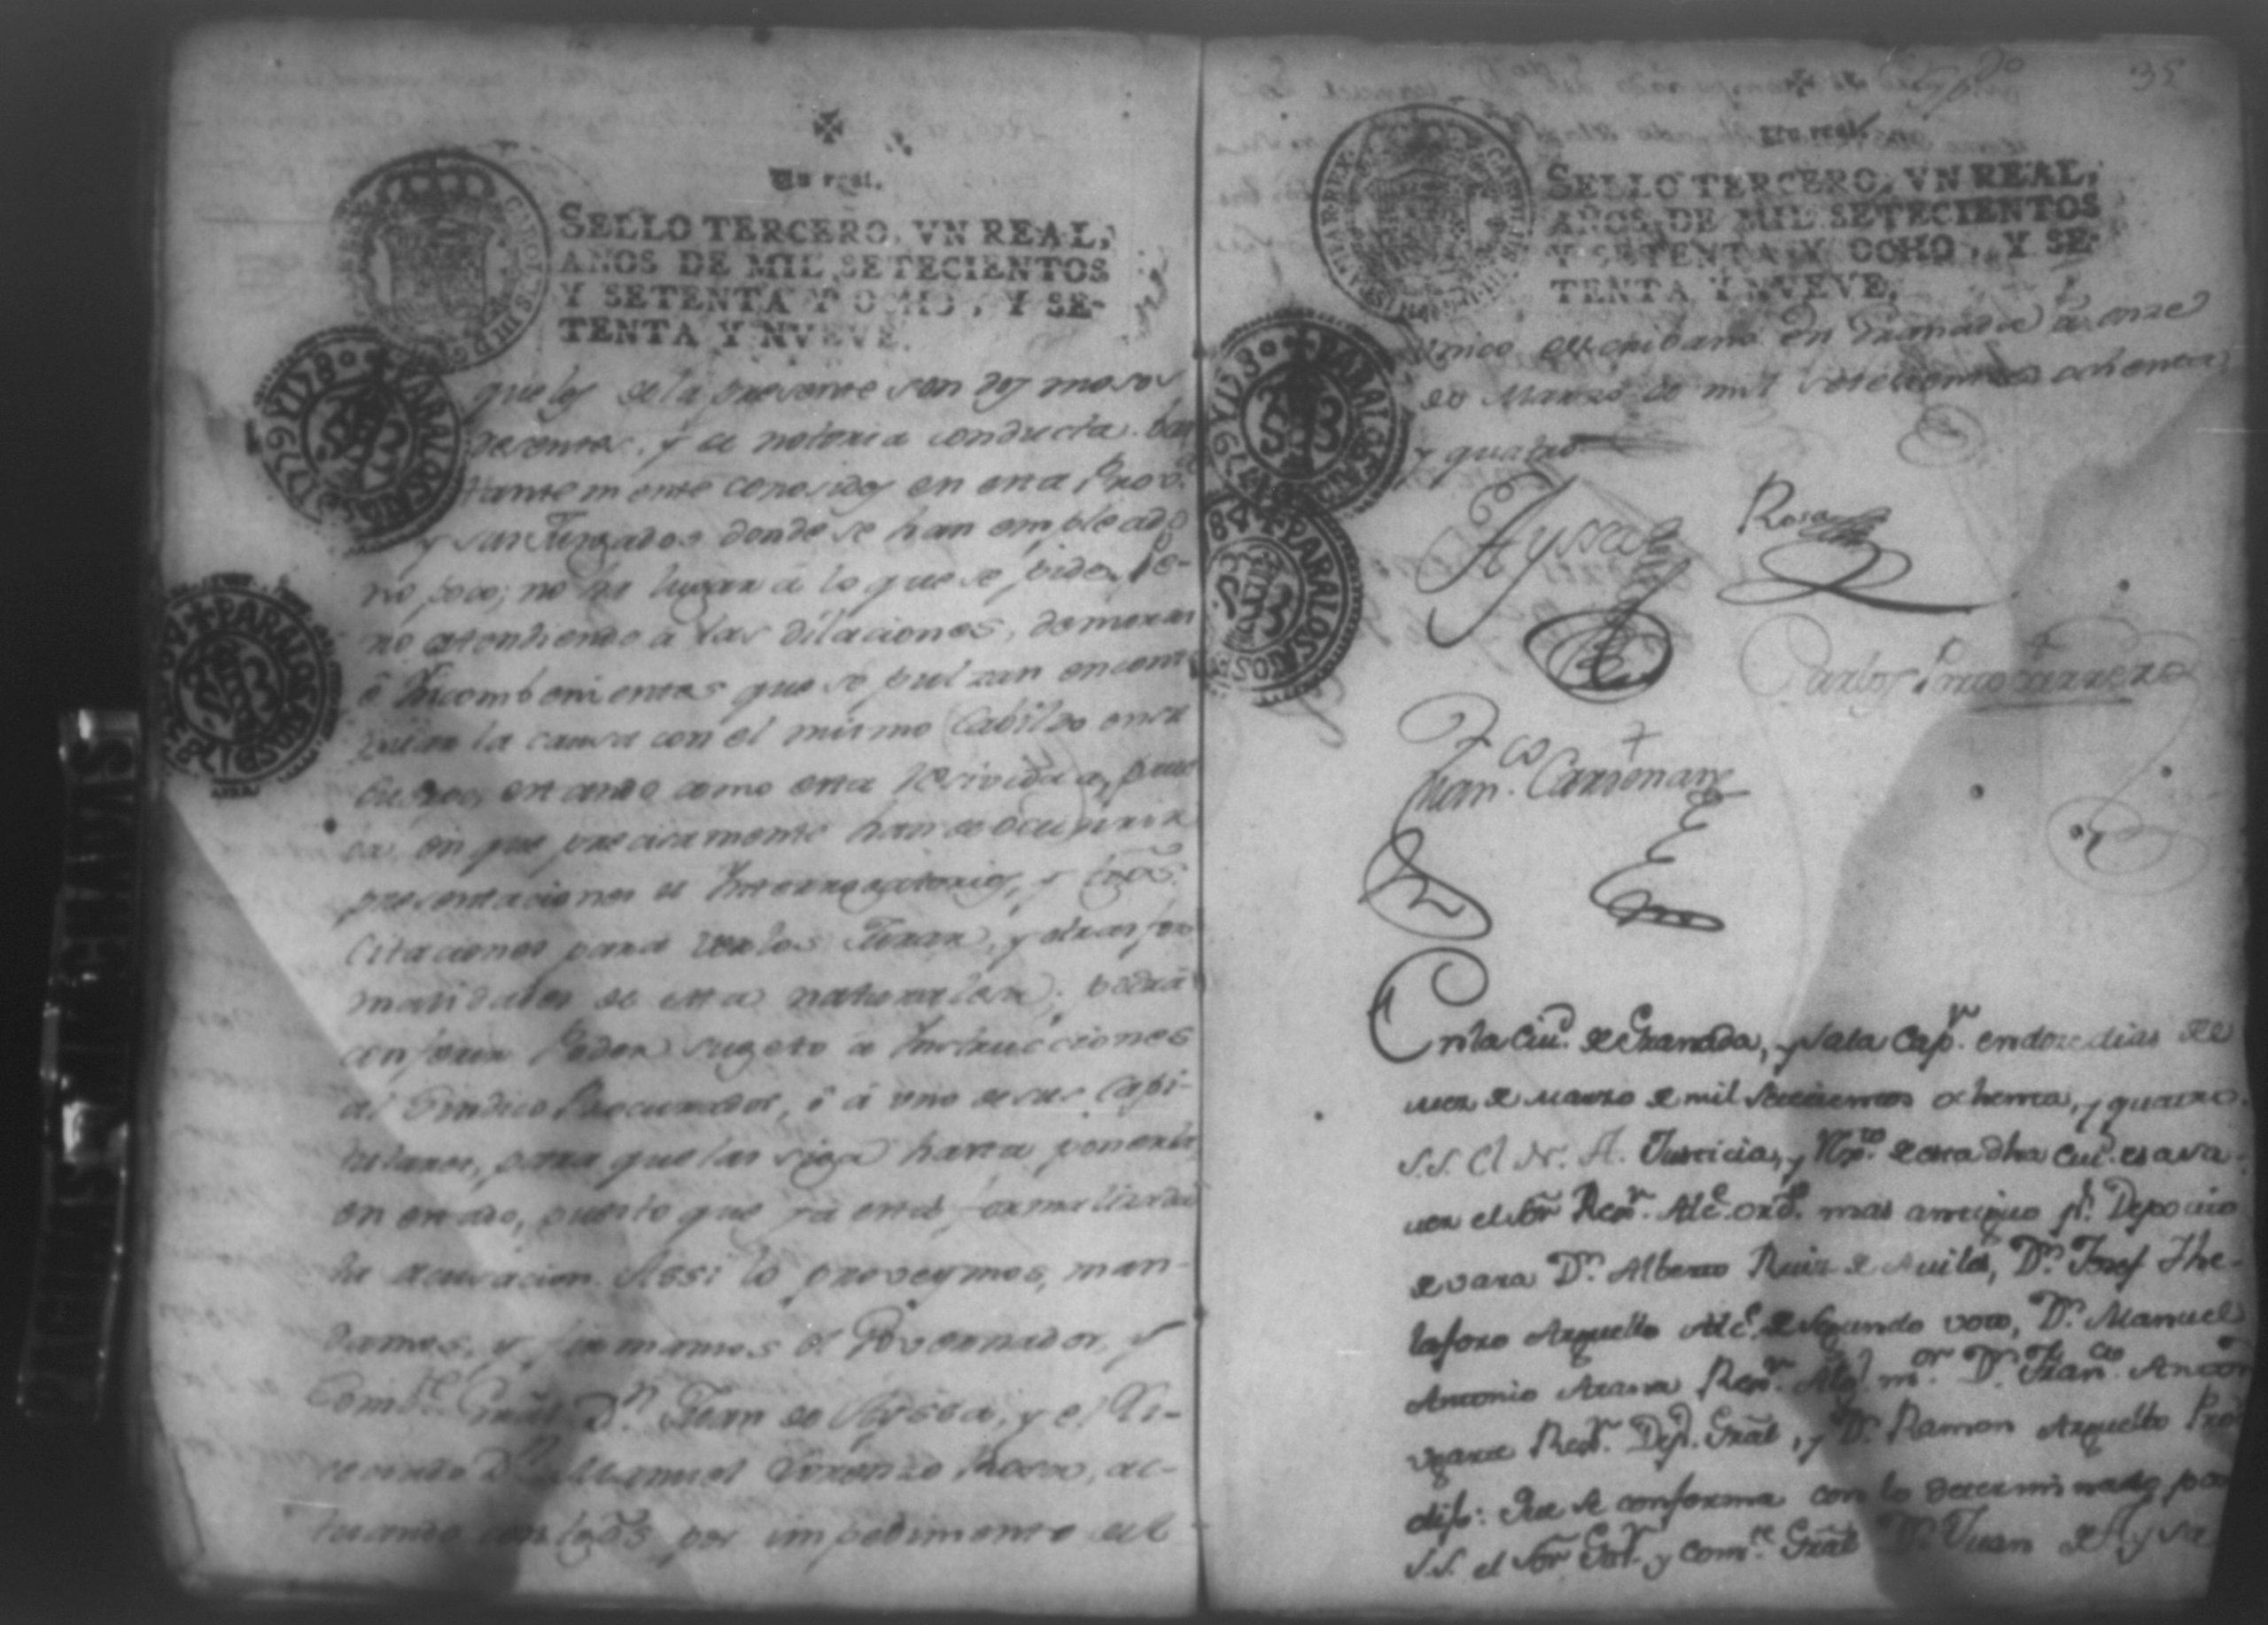 Un real.
SELLO TERCERO, VN REAL,
AÑOS DE MIL SETECIENTOS
Y SETENTA Y OCHO, Y SE-
TENTA Y NVEVE.
que los de la presente son dos mosos
desentes, y de notoria conducta bas
tantemente conosidos en esta Prov.ª
y sus Jusgados donde se han empleado
no poco; no ha lugar á lo que se pide, pe-
ro atendiendo a las dilaciones, demoras
ô Incombenientes que se pulzan en
la causa con el mismo Cabildo en su
Cuerpo, estando como esta resivida a prue
ba, en que precisamente han de ocurrir
presentaciones de Interrogatorios, y
Citaciones para verlos Jurar, y otras for
malidades de esta naturalesa; podrá
conferir Poder sugeto a Instrucciones
al Sindico Procurador, ô á uno de sus Capi-
tulares, para que las siga hasta ponerla
en estado, puesto que ya está formalizada
la acusacion. Assi lo proveymos, man-
damos, y firmamos el Governador, y
Com.te Gral D.n Juan de Ayssa, y el Li-
cenciado D.n Manuel Rosa, ac-
tuando con tgos por impedimento del
35
Un real.
SELLO TERCERO, VN REAL,
AÑOS DE MIL SETECIENTOS
Y SETENTA Y OCHO, Y SE-
TENTA Y NVEVE.
Unico escribano en Granada á onze
de Marzo de mil setecientos ochenta
y quatro
Ayssa Rosa
Carlos
Fran.co Cardenas
En la Ciu.d de Granada, y Sala Cap.r en doze dias del
mes de Marzo de mil setecientos ochenta, y quatro.
S.S. el N. A. Justicia, y Rx.to de esta dha Ciu.d es a sa
ver el Sor Rex.r Alc.e ord.o mas antiguo p.r Deposito
de vara D.n Alberto Ruiz de Aviles, D.n Josef The-
lesforo Arguello Alc.e de segundo voto, D.n Manuel
Antonio Arana Rex.r Alg.l m.or D.n Fran.co Anton
Ugarte Rex.r Dep.o Gral, y D.n Ramon Arguello Pro
dijo: Que se conforma con lo determinado por
S.S. el Sor Gov.r y Com.te Gral D.n Juan de Aysa